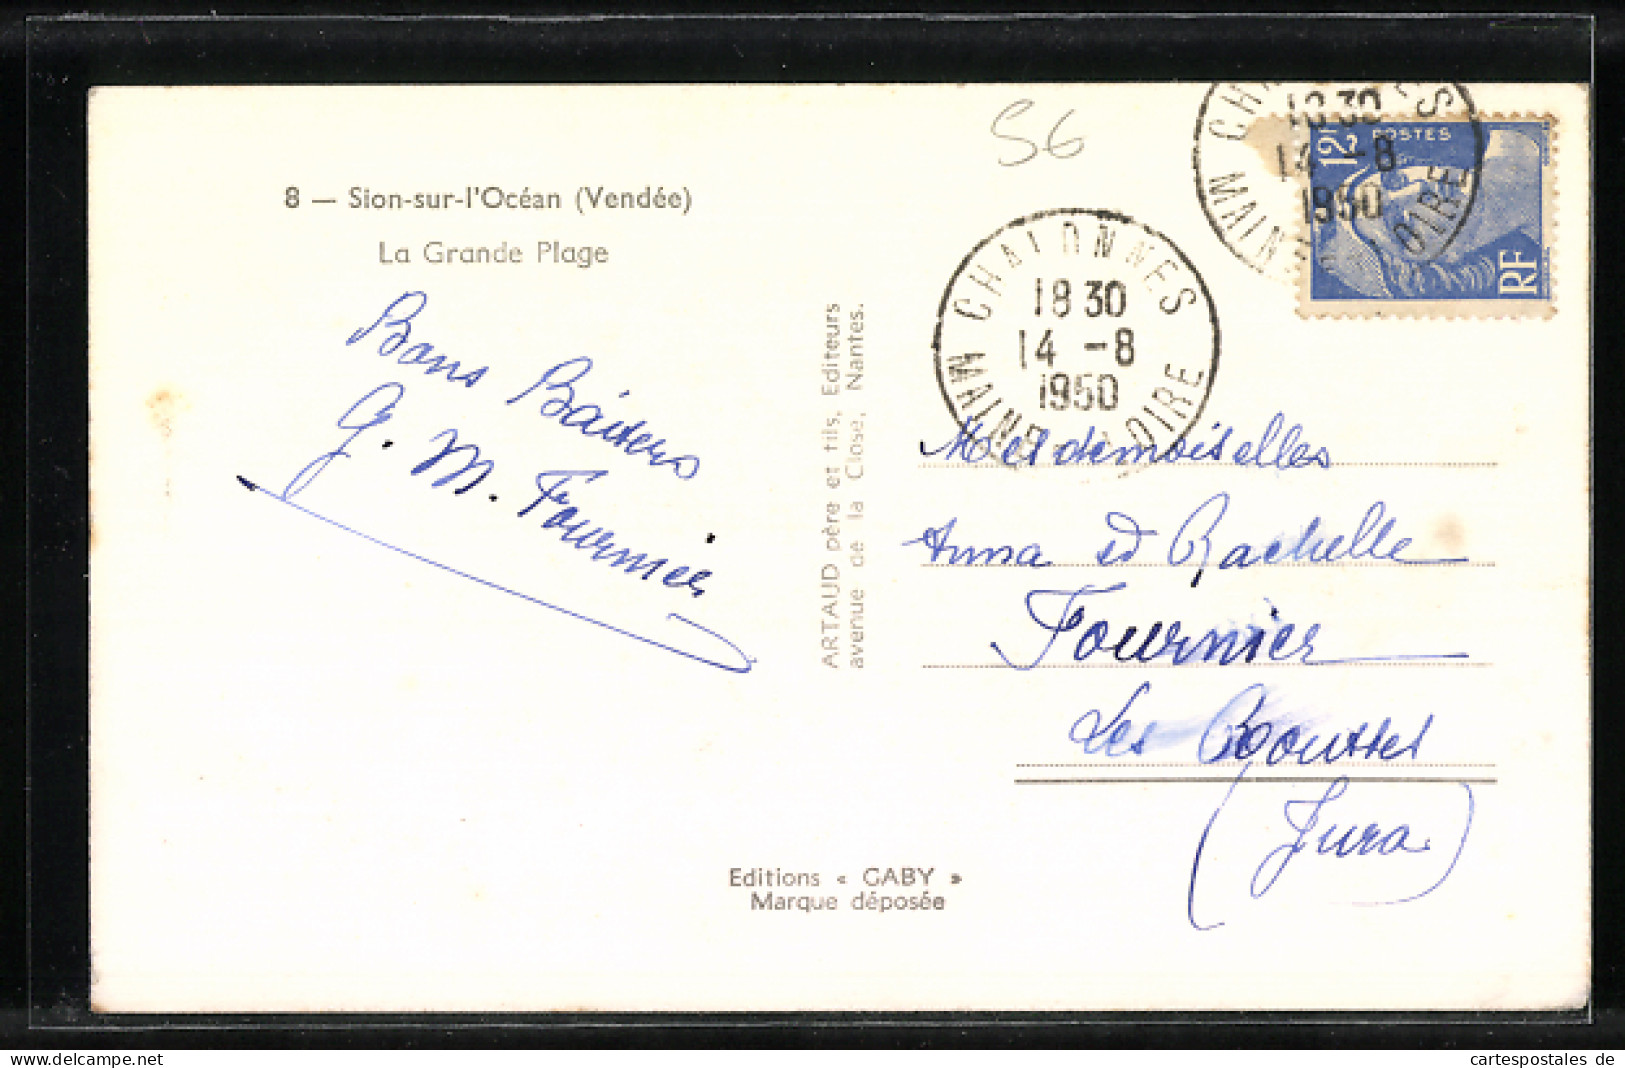 56
8 — Sion-sur-l'Océan (Vendée)
La Grande Plage
Bons Baisers
G. M. Fournier
ARTAUD père et fils, Editeurs
avenue de la Close, Nantes.
CHALONNES
18 30
14 -8
1950
MAINE LOIRE
CH S
18 30
14 -8
1950
MAINE LOIRE
12F POSTES
RF
Mesdemoiselles
Anna et Rachelle
Fournier
Les
(Jura)
Editions « GABY »
Marque déposée
cartespostales de